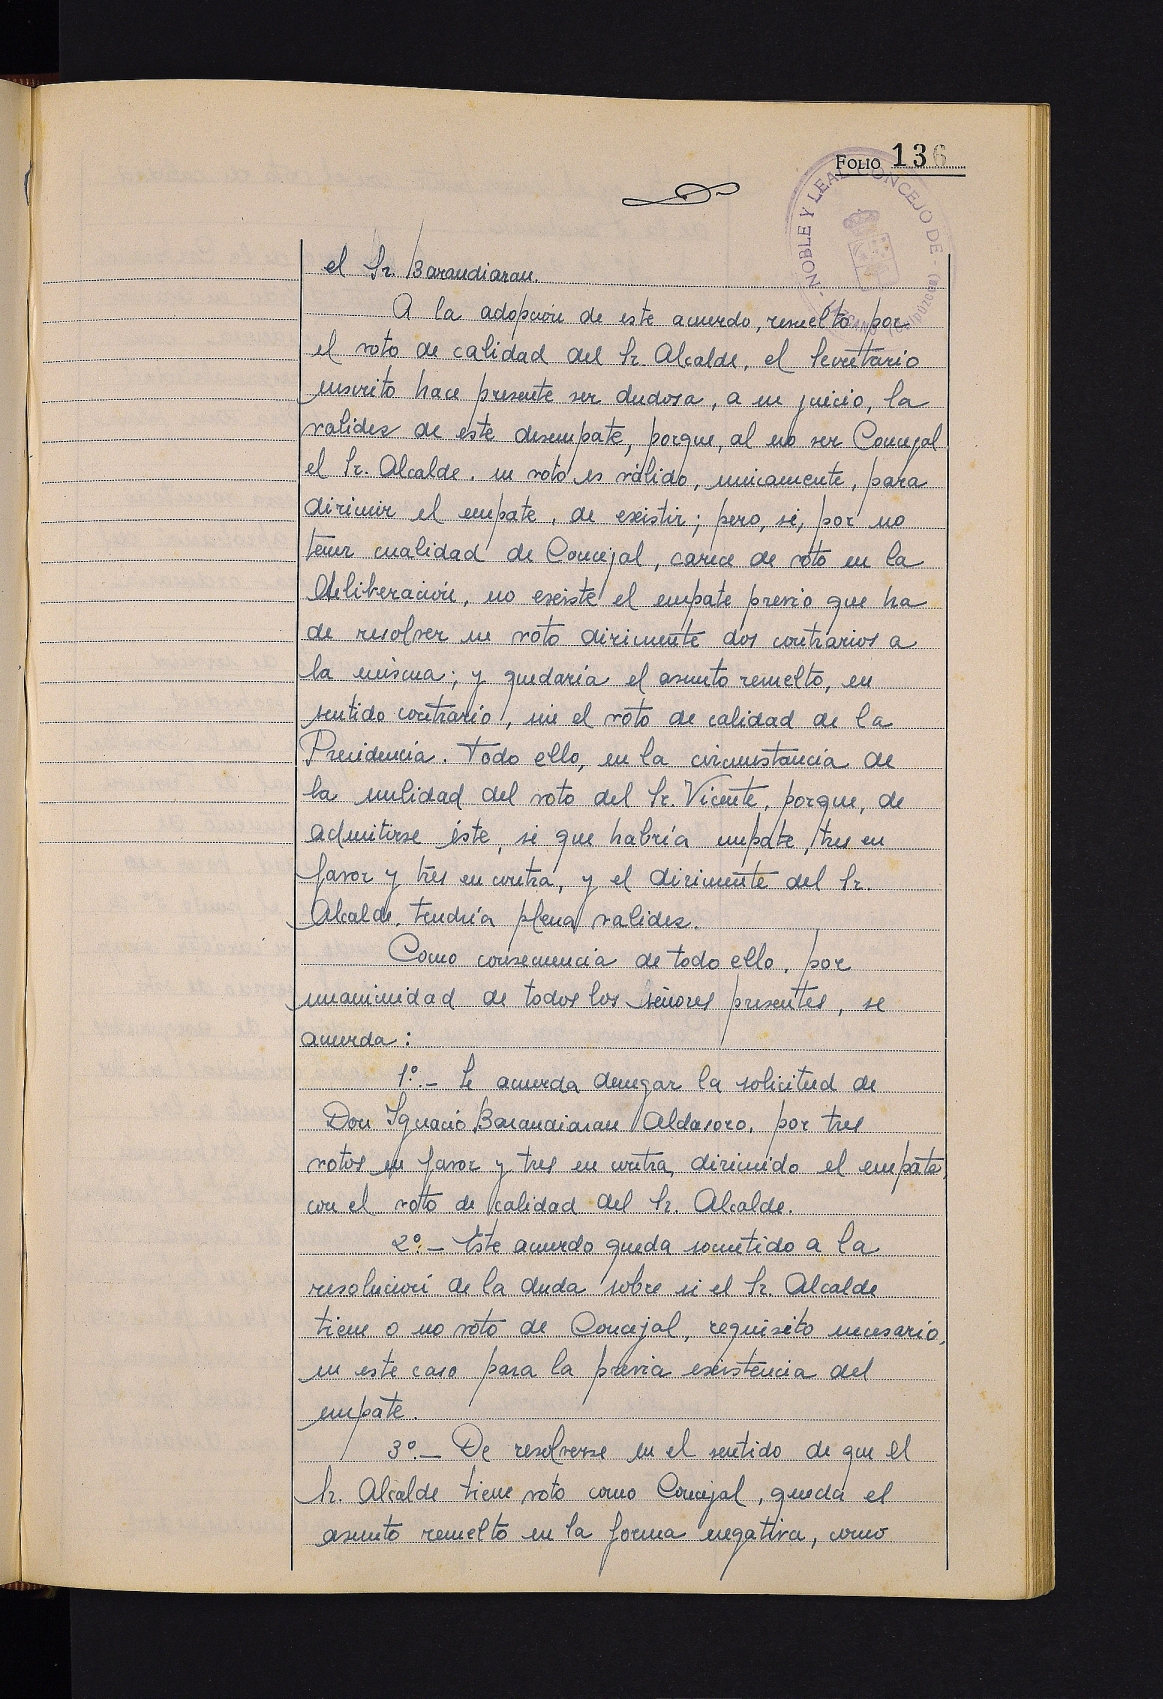 FOLIO 136
NOBLE Y LEAL CONCEJO DE
(GUIPUZCOA)
el Sr. Barandiaran.
A la adopción de este acuerdo, resuelto por
el voto de calidad del Sr. Alcalde, el Secretario
suscrito hace presente ser dudosa, a su juicio, la
validez de este desempate, porque, al no ser Concejal
el Sr. Alcalde, su voto es válido, unicamente, para
dirimir el empate, de existir; pero, si, por no
tener cualidad de Concejal, carece de voto en la
deliberación, no existe el empate previo que ha
de resolver su voto dirimente dos contrarios a
la misma; y quedaría el asunto resuelto, en
sentido contrario, sin el voto de calidad de la
Presidencia. Todo ello, en la circunstancia de
la nulidad del voto del Sr. Vicente, porque, de
admitirse éste, si que habría empate, tres en
favor y tres en contra, y el dirimente del Sr.
Alcalde, tendría plena validez.
Como consecuencia de todo ello, por
unanimidad de todos los señores presentes, se
acuerda:
1º.- Se acuerda denegar la solicitud de
Don Ignacio Barandiaran Aldasoro, por tres
votos en favor y tres en contra, dirimido el empate,
con el voto de calidad del Sr. Alcalde.
2º.- Este acuerdo queda sometido a la
resolución de la duda sobre si el Sr. Alcalde
tiene o no voto de Concejal, requisito necesario,
en este caso para la previa existencia del
empate.
3º.- De resolverse en el sentido de que el
Sr. Alcalde tiene voto como Concejal, queda el
asunto resuelto en la forma negativa, como